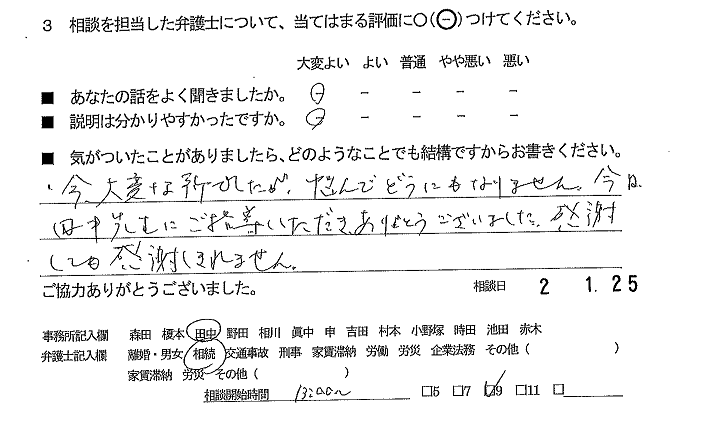 3 相談を担当した弁護士について、当てはまる評価に○(⊖)つけてください。
大変よい よい 普通 やや悪い 悪い
■ あなたの話をよく聞きましたか。 － － － － －
■ 説明は分かりやすかったですか。 － － － － －
■ 気がついたことがありましたら、どのようなことでも結構ですからお書きください。
今、大変な所でしたが、悩んでどうにもなりません。今日、
田中先生にご指導いただきありがとうございました。感謝
しても感謝しきれません。
ご協力ありがとうございました。 相談日 2 1.25
事務所記入欄 森田 榎本 田中 野田 相川 眞中 申 吉田 村本 小野塚 時田 池田 赤木
弁護士記入欄 離婚・男女 相続 交通事故 刑事 家賃滞納 労働 労災 企業法務 その他( )
家賃滞納 労災 その他( )
相談開始時間 13:00～ □5 □7 ☑9 □11 □